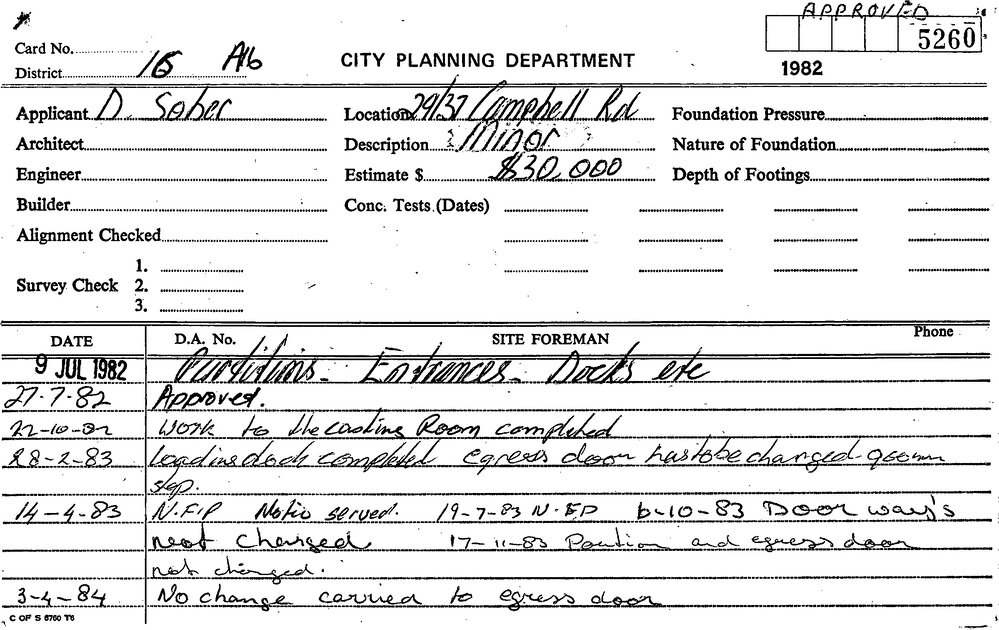 APPROVED
Card No.
5260
District 16 A/b
CITY PLANNING DEPARTMENT
1982
Applicant D. Sober Location 29/37 Campbell Rd Foundation Pressure
Architect Description Minor Nature of Foundation
Engineer Estimate $ $30,000 Depth of Footings
Builder Conc. Tests (Dates)
Alignment Checked
1.
Survey Check 2.
3.
DATE D.A. No. SITE FOREMAN Phone
9 JUL 1982 Partitions - Entrances - Docks etc
27-7-82 Approved.
22-10-82 Work to the casting Room completed
28-2-83 loading dock completed egress door has to be changed - 900mm
step.
14-4-83 N.F.P Notic served. 19-7-83 N.F.P 6-10-83 Door way's
not changed 17-11-83 and egress door
not changed.
3-4-84 No change carried to egress door
C OF S 6760 T6